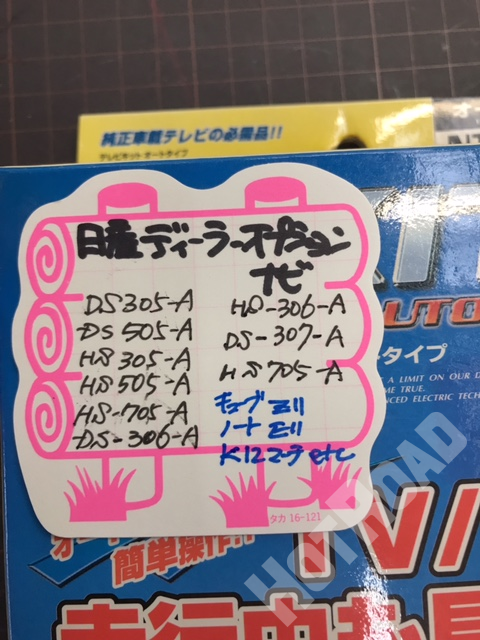 純正車載テレビの必需品!!
テレビキット オートタイプ
日産ディーラーオプション
ナビ
DS305-A
DS505-A
HS305-A
HS505-A
HS-705-A
DS-306-A
HS-306-A
DS-307-A
HS705-A
キューブ Z11
ノート E11
K12マーチ etc
タカ 16-121
AUTO
タイプ
A LIMIT ON OUR D
ME TRUE.
NCED ELECTRIC TECH
簡単操作!!
TV
走行中も見
HOTROAD